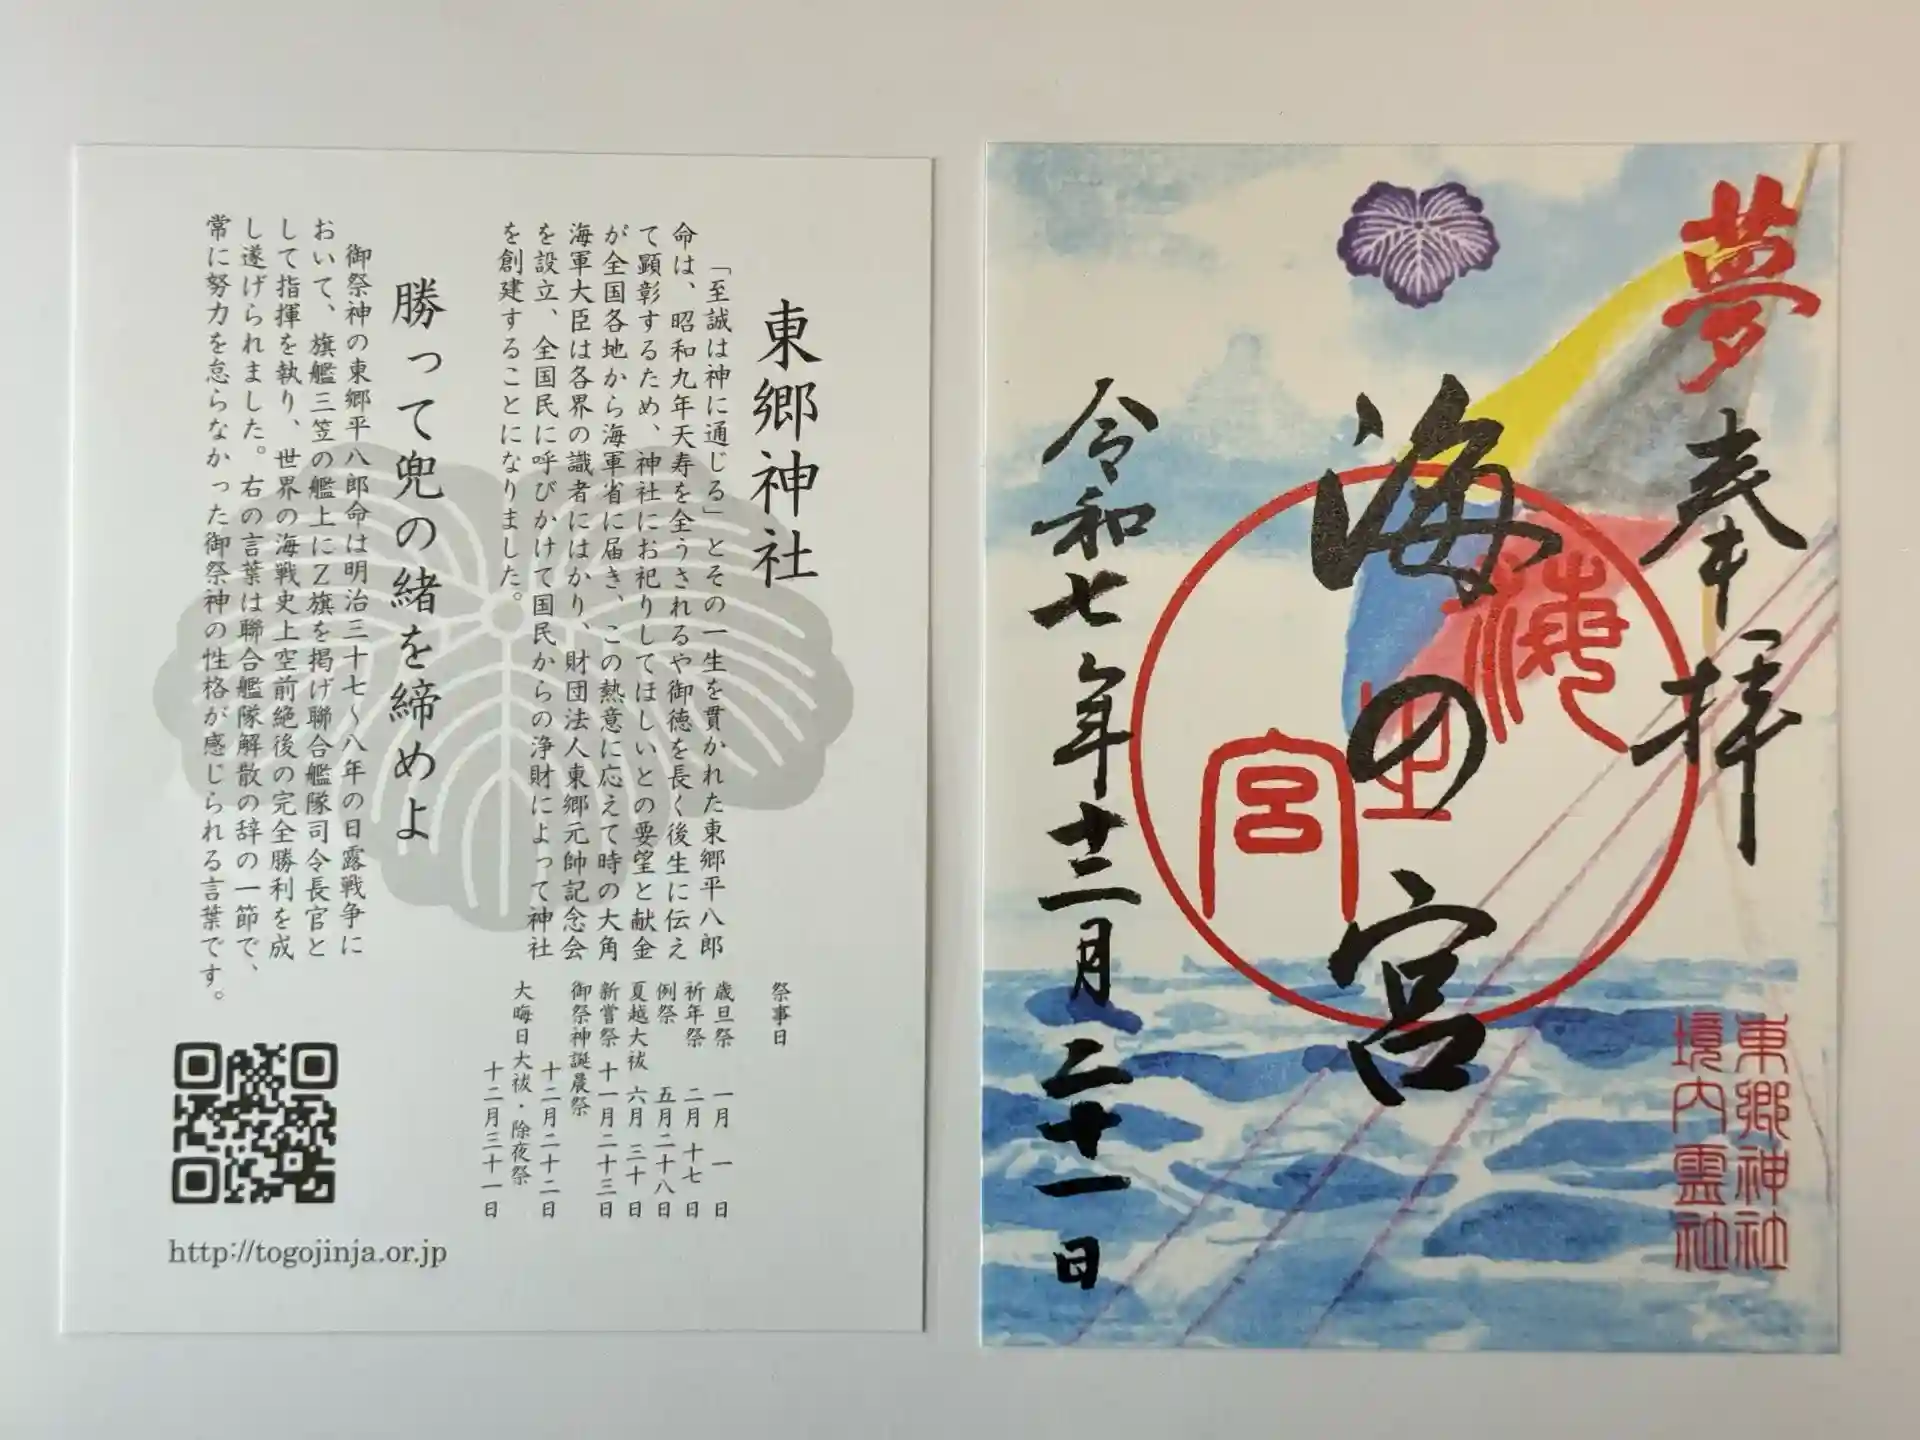 東郷神社
「至誠は神に通じる」とその一生を貫かれた東郷平八郎
命は、昭和九年天寿を全うされるや御徳を長く後生に伝え
て顕彰するため、神社にお祀りしてほしいとの要望と献金
が全国各地から海軍省に届き、この熱意に応えて時の大角
海軍大臣は各界の識者にはかり、財団法人東郷元帥記念会
を設立、全国民に呼びかけて国民からの浄財によって神社
を創建することになりました。
勝って兜の緒を締めよ
御祭神の東郷平八郎命は明治三十七〜八年の日露戦争に
おいて、旗艦三笠の艦上にZ旗を掲げ聯合艦隊司令長官と
して指揮を執り、世界の海戦史上空前絶後の完全勝利を成
し遂げられました。右の言葉は聯合艦隊解散の辞の一節で、
常に努力を怠らなかった御祭神の性格が感じられる言葉です。
祭事日
歳旦祭 一月 一日
祈年祭 二月 十七日
例祭 五月二十八日
夏越大祓 六月 三十日
新嘗祭 十一月二十三日
御祭神誕晨祭
十二月二十二日
大晦日大祓・除夜祭
十二月三十一日
http://togojinja.or.jp
夢
奉拝
海の宮
海
之
宮
令和七年十二月二十一日
東郷神社
境内霊社